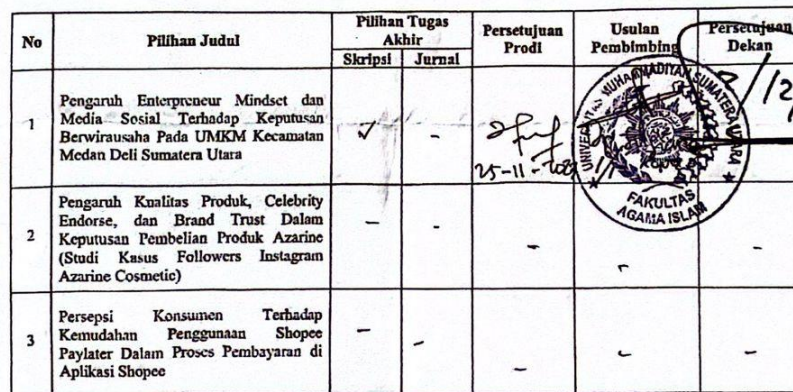 No
Pilihan Judul
Pilihan Tugas
Akhir
Skripsi
Jurnal
Persetujuan
Prodi
Usulan
Pembimbing
Persetujuan
Dekan
1
Pengaruh Enterpreneur Mindset dan
Media Sosial Terhadap Keputusan
Berwirausaha Pada UMKM Kecamatan
Medan Deli Sumatera Utara
✓
-
25-11-
UNIVERSITAS MUHAMMADIYAH SUMATERA UTARA
FAKULTAS
AGAMA ISLAM
2
Pengaruh Kualitas Produk, Celebrity
Endorse, dan Brand Trust Dalam
Keputusan Pembelian Produk Azarine
(Studi Kasus Followers Instagram
Azarine Cosmetic)
-
-
-
-
-
3
Persepsi Konsumen Terhadap
Kemudahan Penggunaan Shopee
Paylater Dalam Proses Pembayaran di
Aplikasi Shopee
-
-
-
-
-